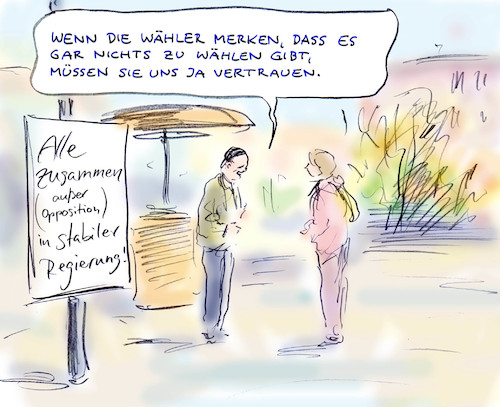 WENN DIE WÄHLER MERKEN, DASS ES
GAR NICHTS ZU WÄHLEN GIBT,
MÜSSEN SIE UNS JA VERTRAUEN.
Alle
zusammen
(außer
Opposition)
in stabiler
Regierung!